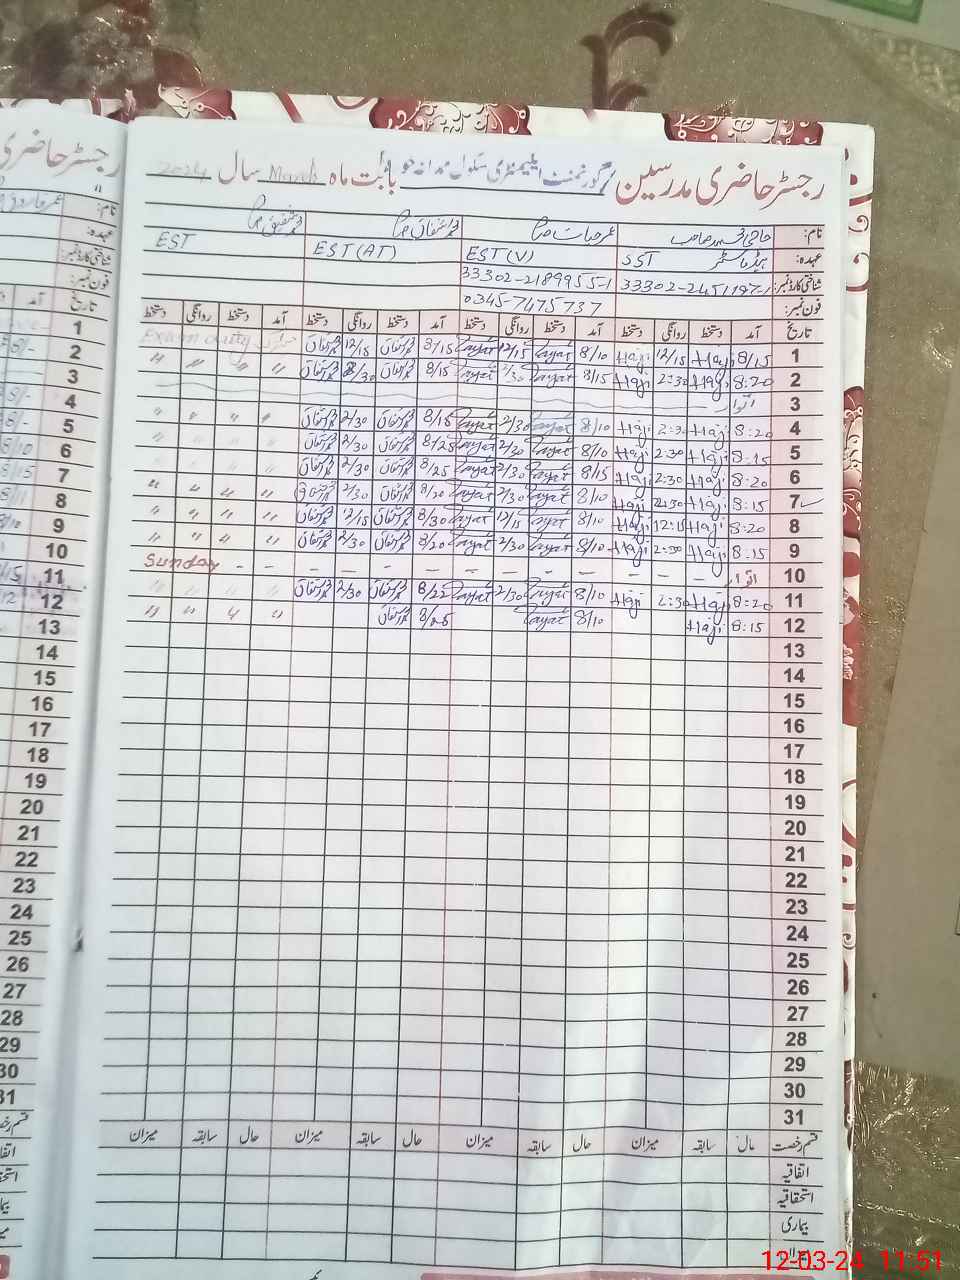 رجسٹر حاضری مدرسین گورنمنٹ ایلیمنٹری سکول بابت ماہ March سال 2024
نام: حاجی محمد صاحب عمر حیات صاحب محمد اشفاق صاحب محمد شفیق صاحب
عہدہ: SST ہیڈ ماسٹر EST (V) EST (AT) EST
شناختی کارڈ نمبر: 33302-2451197-1 33302-2189955-1
فون نمبر: 0345-7475737
تاریخ آمد دستخط روانگی دستخط آمد دستخط روانگی دستخط آمد دستخط روانگی دستخط آمد دستخط روانگی دستخط
1 8/15 Haji 12/15 Haji 8/10 Hayat 12/15 Hayat 8/15 محمد اشفاق 12/15 محمد اشفاق Exam duty
2 8:20 Haji 2:30 Haji 8/15 Hayat 2/30 Hayat 8/15 محمد اشفاق 2/30 محمد اشفاق " " " "
3 اتوار
4 8:20 Haji 2:30 Haji 8/10 Hayat 2/30 Hayat 8/15 محمد اشفاق 2/30 محمد اشفاق " " " "
5 8:15 Haji 2:30 Haji 8/10 Hayat 2/30 Hayat 8/25 محمد اشفاق 2/30 محمد اشفاق " " " "
6 8:20 Haji 2:30 Haji 8/15 Hayat 2/30 Hayat 8/25 محمد اشفاق 2/30 محمد اشفاق
7 8:15 Haji 2:30 Haji 8/10 Hayat 2/30 Hayat 8/20 محمد اشفاق 2/30 محمد اشفاق " " " "
8 8:20 Haji 12:15 Haji 8/10 Hayat 12/15 Hayat 8/30 محمد اشفاق 12/15 محمد اشفاق " " " "
9 8:15 Haji 2:30 Haji 8/10 Hayat 2/30 Hayat 8/20 محمد اشفاق 2/30 محمد اشفاق " " " "
10 اتوار - - - - - - - - - - Sunday
11 8:20 Haji 2:30 Haji 8/10 Hayat 2/30 Hayat 8/22 محمد اشفاق 2/30 محمد اشفاق " " " "
12 8:15 Haji 8/10 Hayat 8/25 محمد اشفاق " " " "
13
14
15
16
17
18
19
20
21
22
23
24
25
26
27
28
29
30
31
قسم رخصت حال سابقہ میزان حال سابقہ میزان حال سابقہ میزان حال سابقہ میزان
اتفاقیہ
استحقاقیہ
بیماری
میزان
رجسٹر حاضری
نام: عمر فاروق
عہدہ:
شناختی کارڈ نمبر:
فون نمبر:
تاریخ آمد
1
2
3
4
5
6
7
8
9
10
11
12
13
14
15
16
17
18
19
20
21
22
23
24
25
26
27
28
29
30
31
12-03-24 11:51